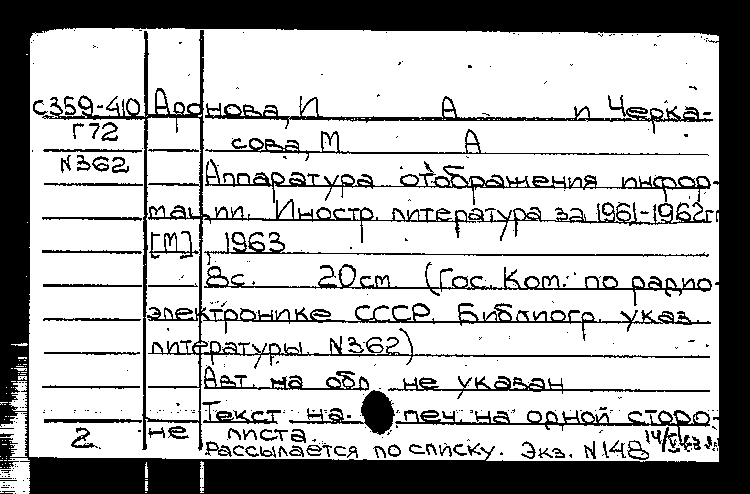 С359-410 Аронова, И А. и Черка-
Г72 сова, М А
N362 Аппаратура отображения инфор-
мации. Иностр. литература за 1961-1962гг
[М] 1963
8с. 20см (Гос. Ком. по радио-
электронике СССР. Библиогр. указ.
литературы N362)
Авт. на обл. не указан
Текст на. печ. на одной сторо-
2 не листа.
Рассылается по списку. Экз. N148